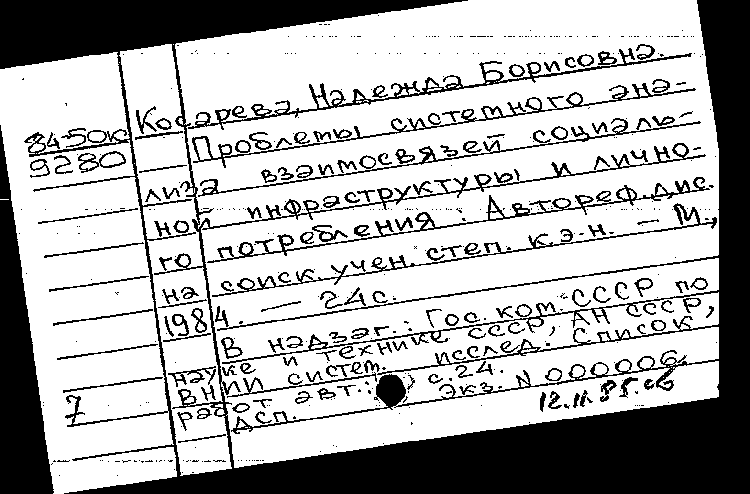 84-50ю
9280
Косарева, Надежда Борисовна.
Проблемы системного ана-
лиза взаимосвязей социаль-
ной инфраструктуры и лично-
го потребления : Автореф. дис.
на соиск. учен. степ. к.э.н. — М.,
1984. — 24 с.
В надзаг.: Гос. ком. СССР по
науке и технике СССР, АН СССР,
ВНИИ систем. исслед. Список
работ авт.: с. 24.
ДСП. Экз. N 000006
7
12.11.85.